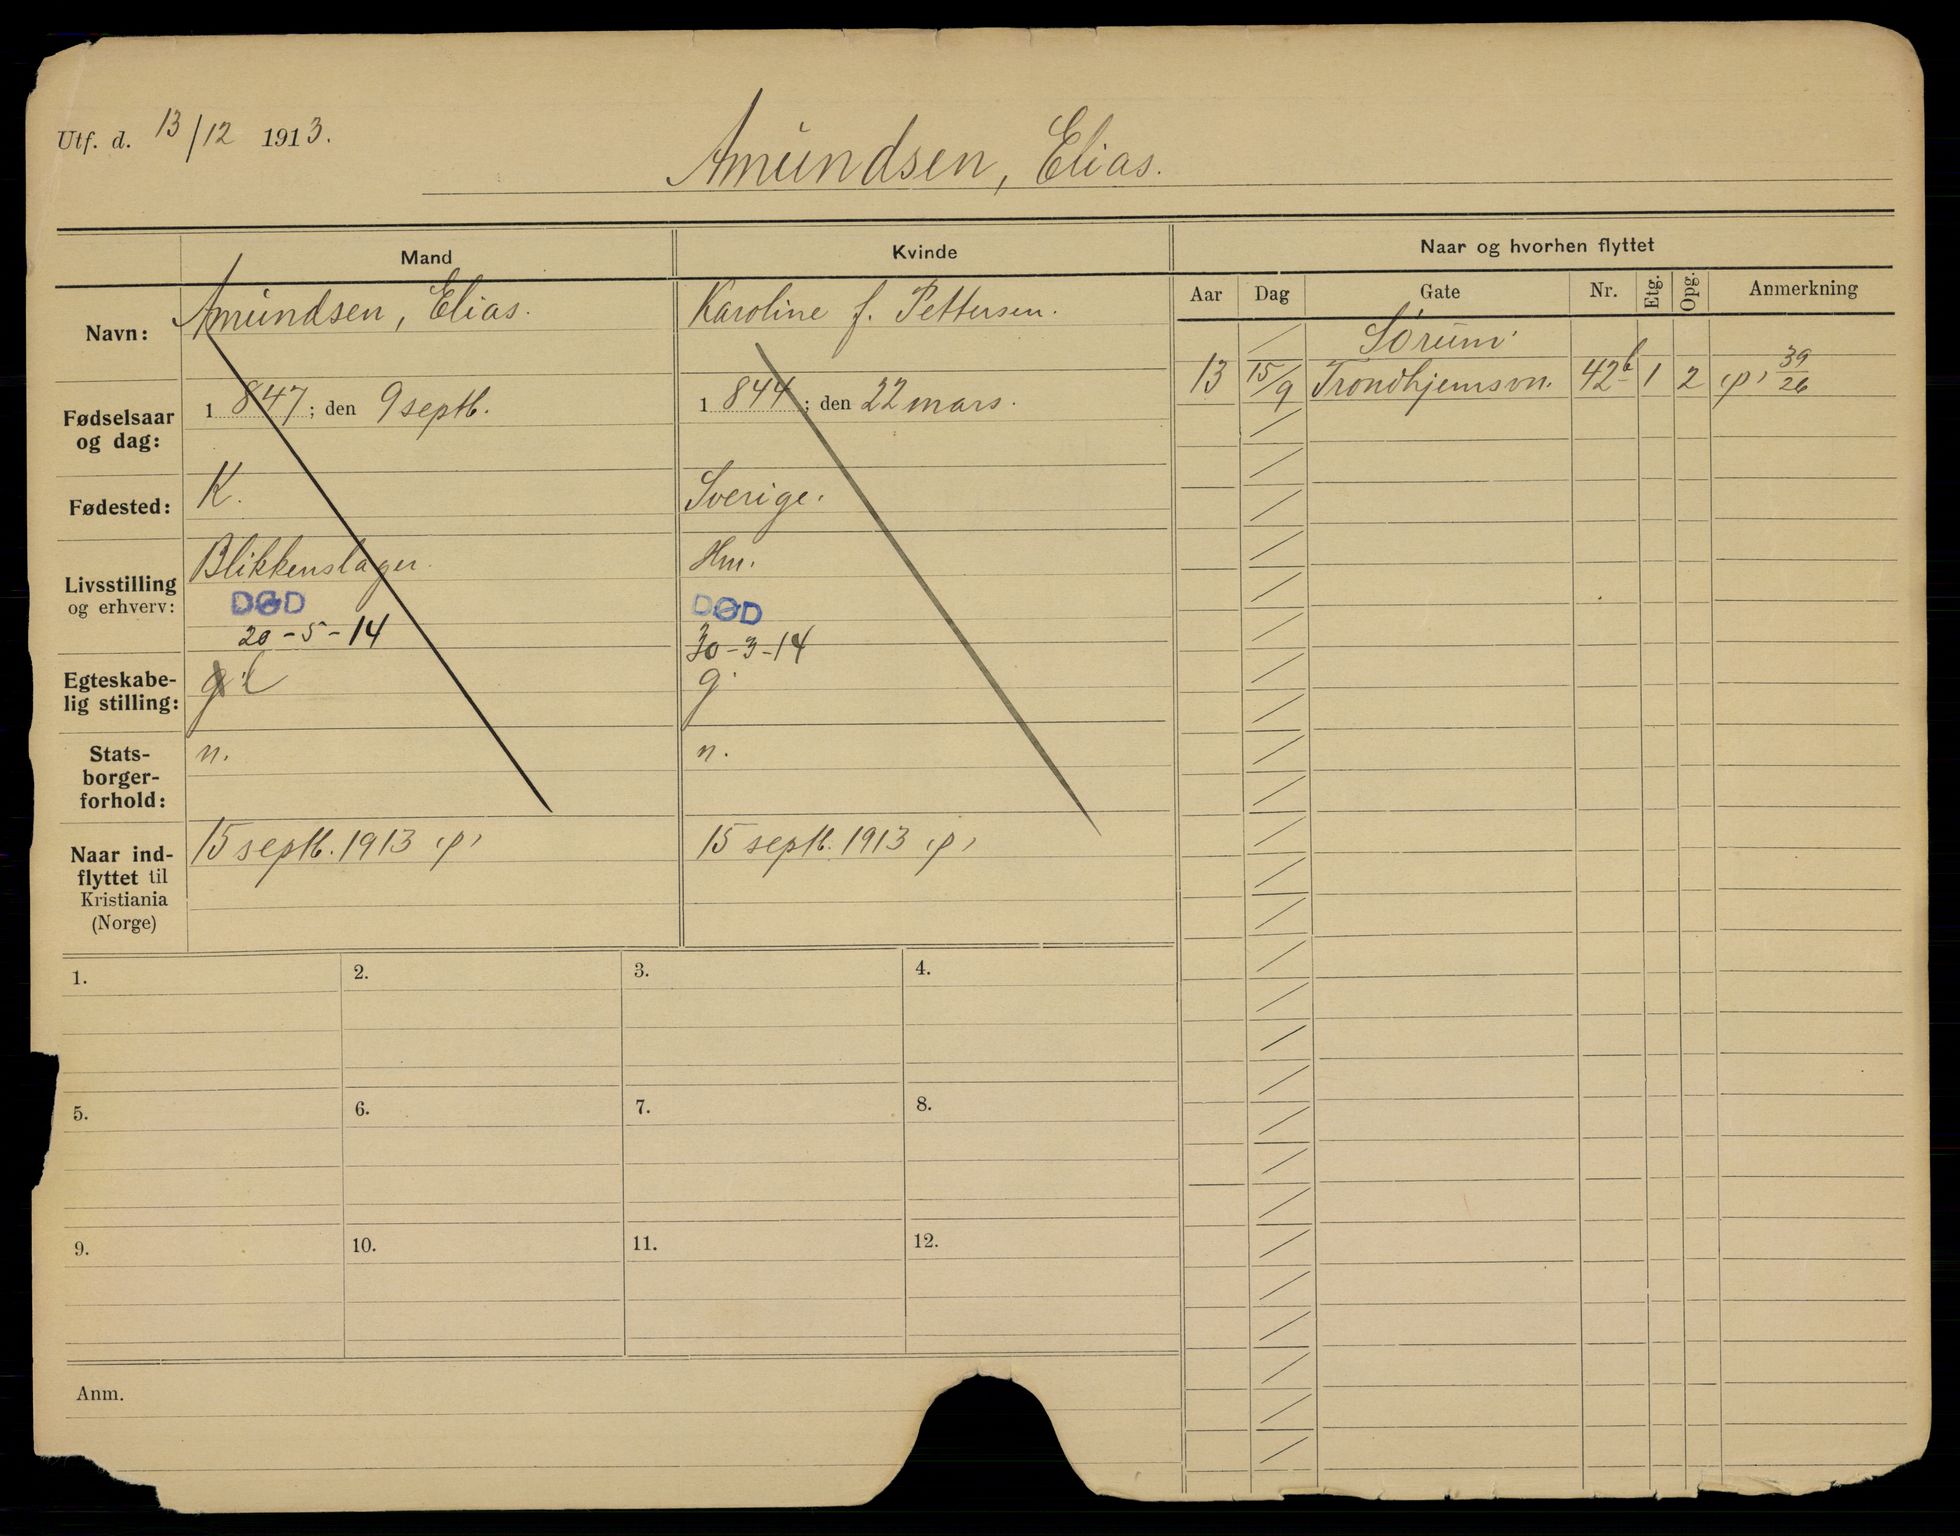 Utf. d. 13/12 1913.
Amundsen, Elias.
Mand
Kvinde
Naar og hvorhen flyttet
Aar Dag Gate Nr. Etg. Opg. Anmerkning
Navn: Amundsen, Elias. Karoline f. Pettersen.
Sørum
13 15/9 Trondhjemsvn. 42b 1 2 "p" 39/26
Fødselsaar
og dag:
1847; den 9 septb. 1844; den 22 mars.
Fødested: K. Sverige.
Livsstilling
og erhverv:
Blikkenslager. Hm.
DØD DØD
20-5-14 30-3-14
Egteskabe-
lig stilling:
g. g.
Stats-
borger-
forhold:
n. n.
Naar ind-
flyttet til
Kristiania
(Norge)
15 septb. 1913 "p" 15 septb. 1913 "p"
1. 2. 3. 4.
5. 6. 7. 8.
9. 10. 11. 12.
Anm.